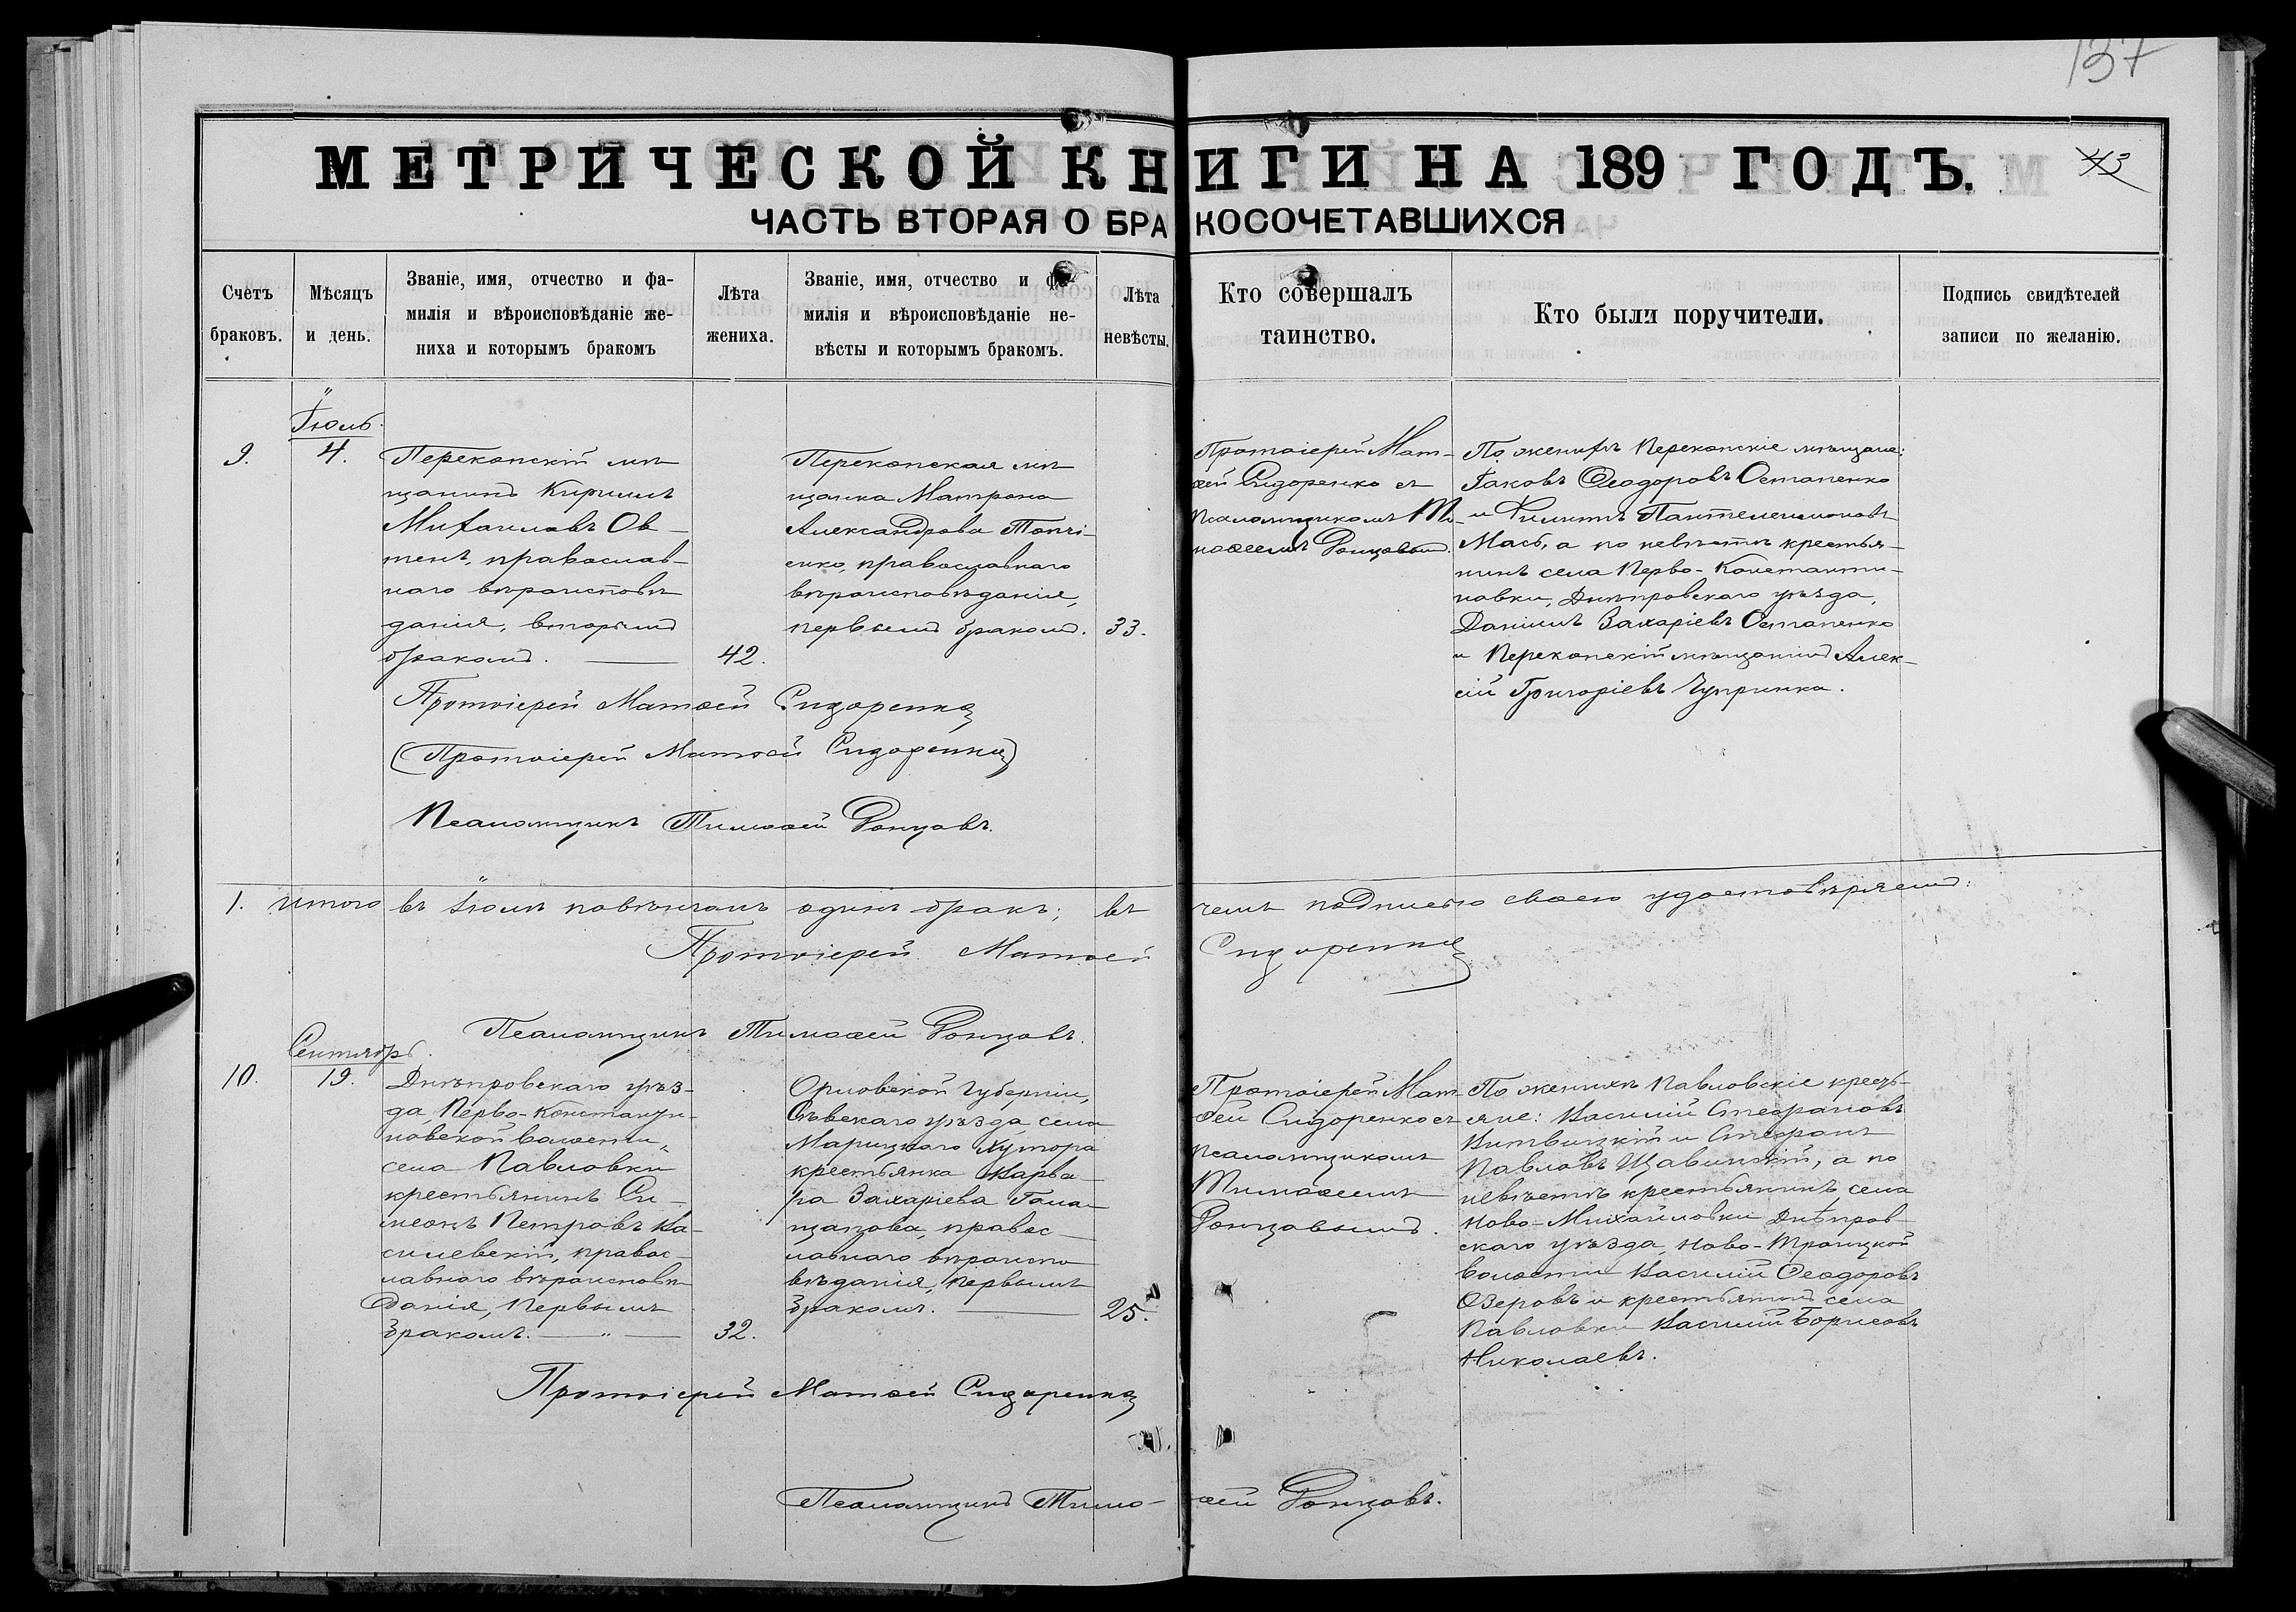 137
МЕТРИЧЕСКОЙ КНИГИ НА 189 ГОДЪ.
43
ЧАСТЬ ВТОРАЯ О БРАКОСОЧЕТАВШИХСЯ
Счетъ
браковъ.
Мѣсяцъ
и день.
Званіе, имя, отчество и фа-
милія и вѣроисповѣданіе же-
ниха и которымъ бракомъ
Лѣта
жениха.
Званіе, имя, отчество и фа-
милія и вѣроисповѣданіе не-
вѣсты и которымъ бракомъ.
Лѣта
невѣсты.
Кто совершалъ
таинство.
Кто были поручители.
Подпись свидѣтелей
записи по желанію.
9.
Іюль.
4.
Перекопскій мѣ
щанинъ Кириллъ
Михаиловъ Ов-
тенъ, православ-
наго вѣроисповѣ
данія, вторымъ
бракомъ.
42.
Перекопская мѣ
щанка Матрона
Александрова Топчі-
енко, православнаго
вѣроисповѣданія,
первымъ бракомъ.
33.
Протоіерей Мат-
ѳей Сидоренко съ
псаломщикомъ Ти-
моѳеемъ Ронцовым.
По женихѣ Перекопскіе мѣщане:
Іаковъ Ѳеодоровъ Остапенко
и Филиппъ Пантелеимоновъ
Мась, а по невѣстѣ крестья-
нинъ села Перво-Константи-
новки, Днѣпровскаго уѣзда,
Даніилъ Захаріевъ Остапенко
и Перекопскій мѣщанинъ Алек-
сій Григоріевъ Чупринка.
Протоіерей Матѳей Сидоренко
(Протоіерей Матѳей Сидоренко)
Псаломщикъ Тимоѳей Ронцовъ.
1. Итого въ Іюлѣ повѣнчанъ одинъ бракъ; въ чемъ подписью своею удостовѣряемъ:
Протоіерей Матѳей Сидоренко
Псаломщикъ Тимоѳей Ронцовъ.
10.
Сентябрь.
19.
Днѣпровскаго уѣз-
да, Перво-Константи-
новской волости,
села Павловки
крестьянинъ Си-
меонъ Петровъ Ва-
силевскій, правос-
лавнаго вѣроисповѣ
данія, первымъ
бракомъ.
32.
Орловской губерніи,
Сѣвскаго уѣзда, села
Марицкаго Хутора
крестьянка Варва-
ра Захаріева
правос-
лавнаго вѣроиспо
вѣданія, первымъ
бракомъ.
25.
Протоіерей Мат-
ѳей Сидоренко съ
псаломщикомъ
Тимоѳеемъ
Ронцовымъ.
По женихѣ Павловскіе кресть-
яне: Василій Стефановъ
Витвицкій и Стефанъ
Павловъ Щавинскій, а по
невѣстѣ крестьянинъ села
Ново-Михайловки Днѣпров-
скаго уѣзда, Ново-Троицкой
волости Василій Ѳеодоровъ
Озеровъ и крестьянинъ села
Павловки Василій Борисовъ
Николаевъ.
Протоіерей Матѳей Сидоренко
Псаломщикъ Тимоѳей Ронцовъ.